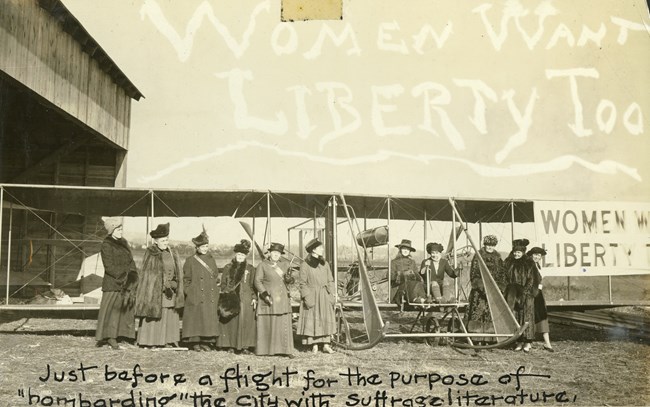 Women Want
Liberty Too
WOMEN W
LIBERTY T
Just before a flight for the purpose of
"bombarding" the City with Suffrage literature,